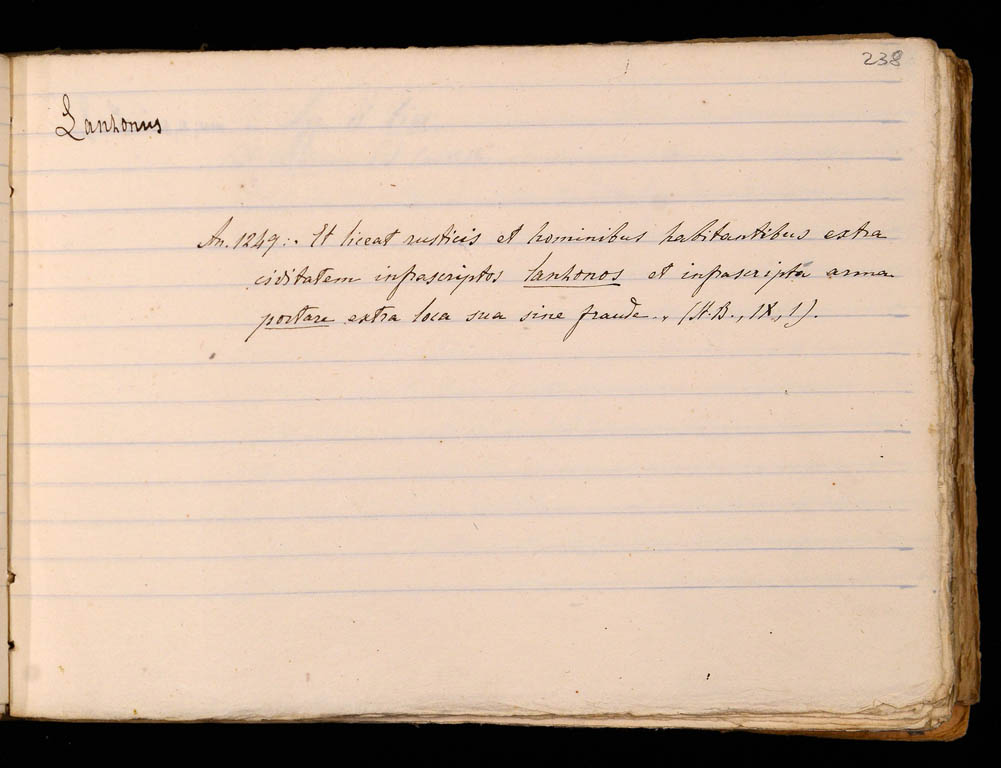 238
Lanhonus
An. 1249:. Et liceat rusticis et hominibus habitantibus extra
civitatem infrascriptos lanhonos et infrascripta arma
portare extra loca sua sine fraude., (St. B., IX, 1).